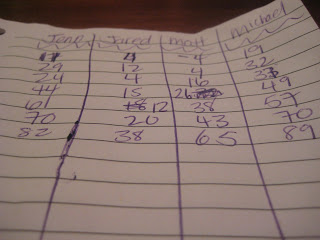 Jared Matt Michael
4 -4 19
29 12 4 32
24 4 16
44 15 26 49
61 12 38 57
70 20 43 70
82 38 65 89